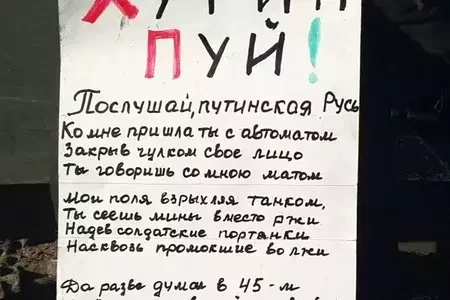 ХУТИН
ПУЙ!
Послушай, путинская Русь
Ко мне пришла ты с автоматом
Закрыв чулком свое лицо
Ты говоришь со мною матом
Мои поля взрыхляя танком,
Ты сеешь мины вместо ржи
Надев солдатские портянки
Насквозь промокшие во лжи
Да разве думал в 45-м